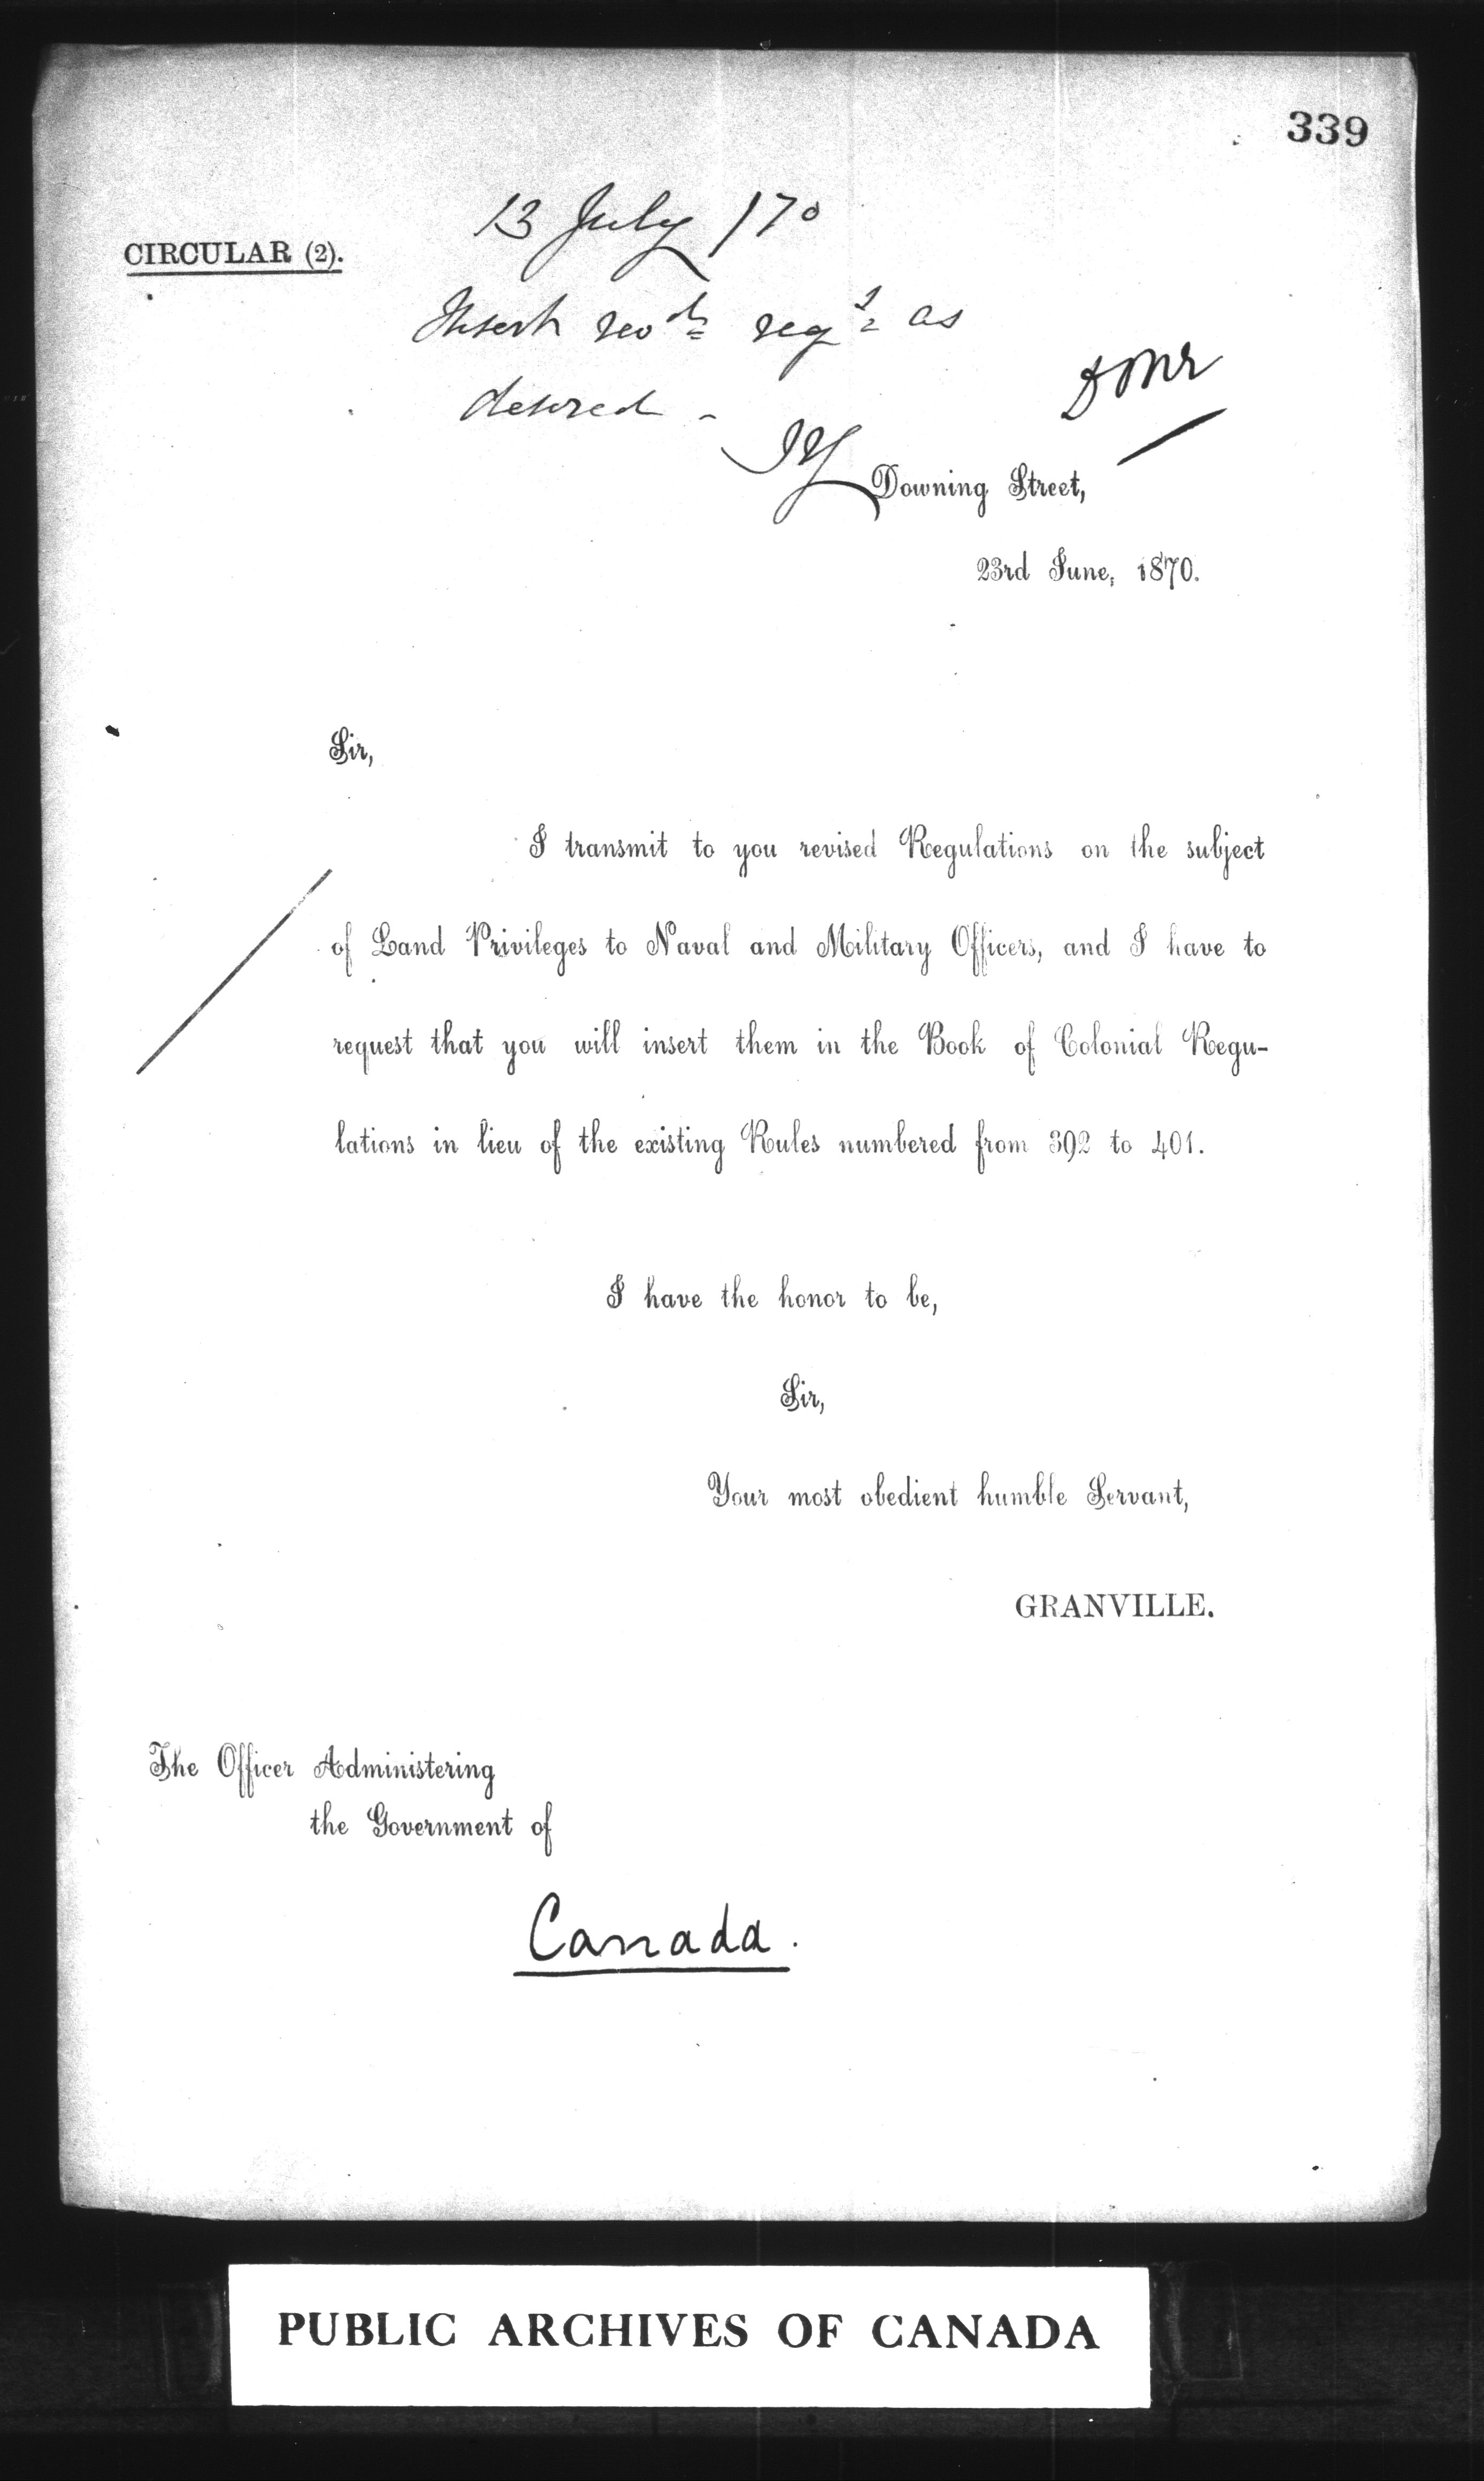 339
13 July /70
CIRCULAR (2).
Insert revd regs as
desired -
Done
JY
Downing Street,
23rd June, 1870.
Sir,
I transmit to you revised Regulations on the subject
of Land Privileges to Naval and Military Officers, and I have to
request that you will insert them in the Book of Colonial Regu-
lations in lieu of the existing Rules numbered from 392 to 401.
I have the honor to be,
Sir,
Your most obedient humble Servant,
GRANVILLE.
The Officer Administering
the Government of
Canada.
PUBLIC ARCHIVES OF CANADA